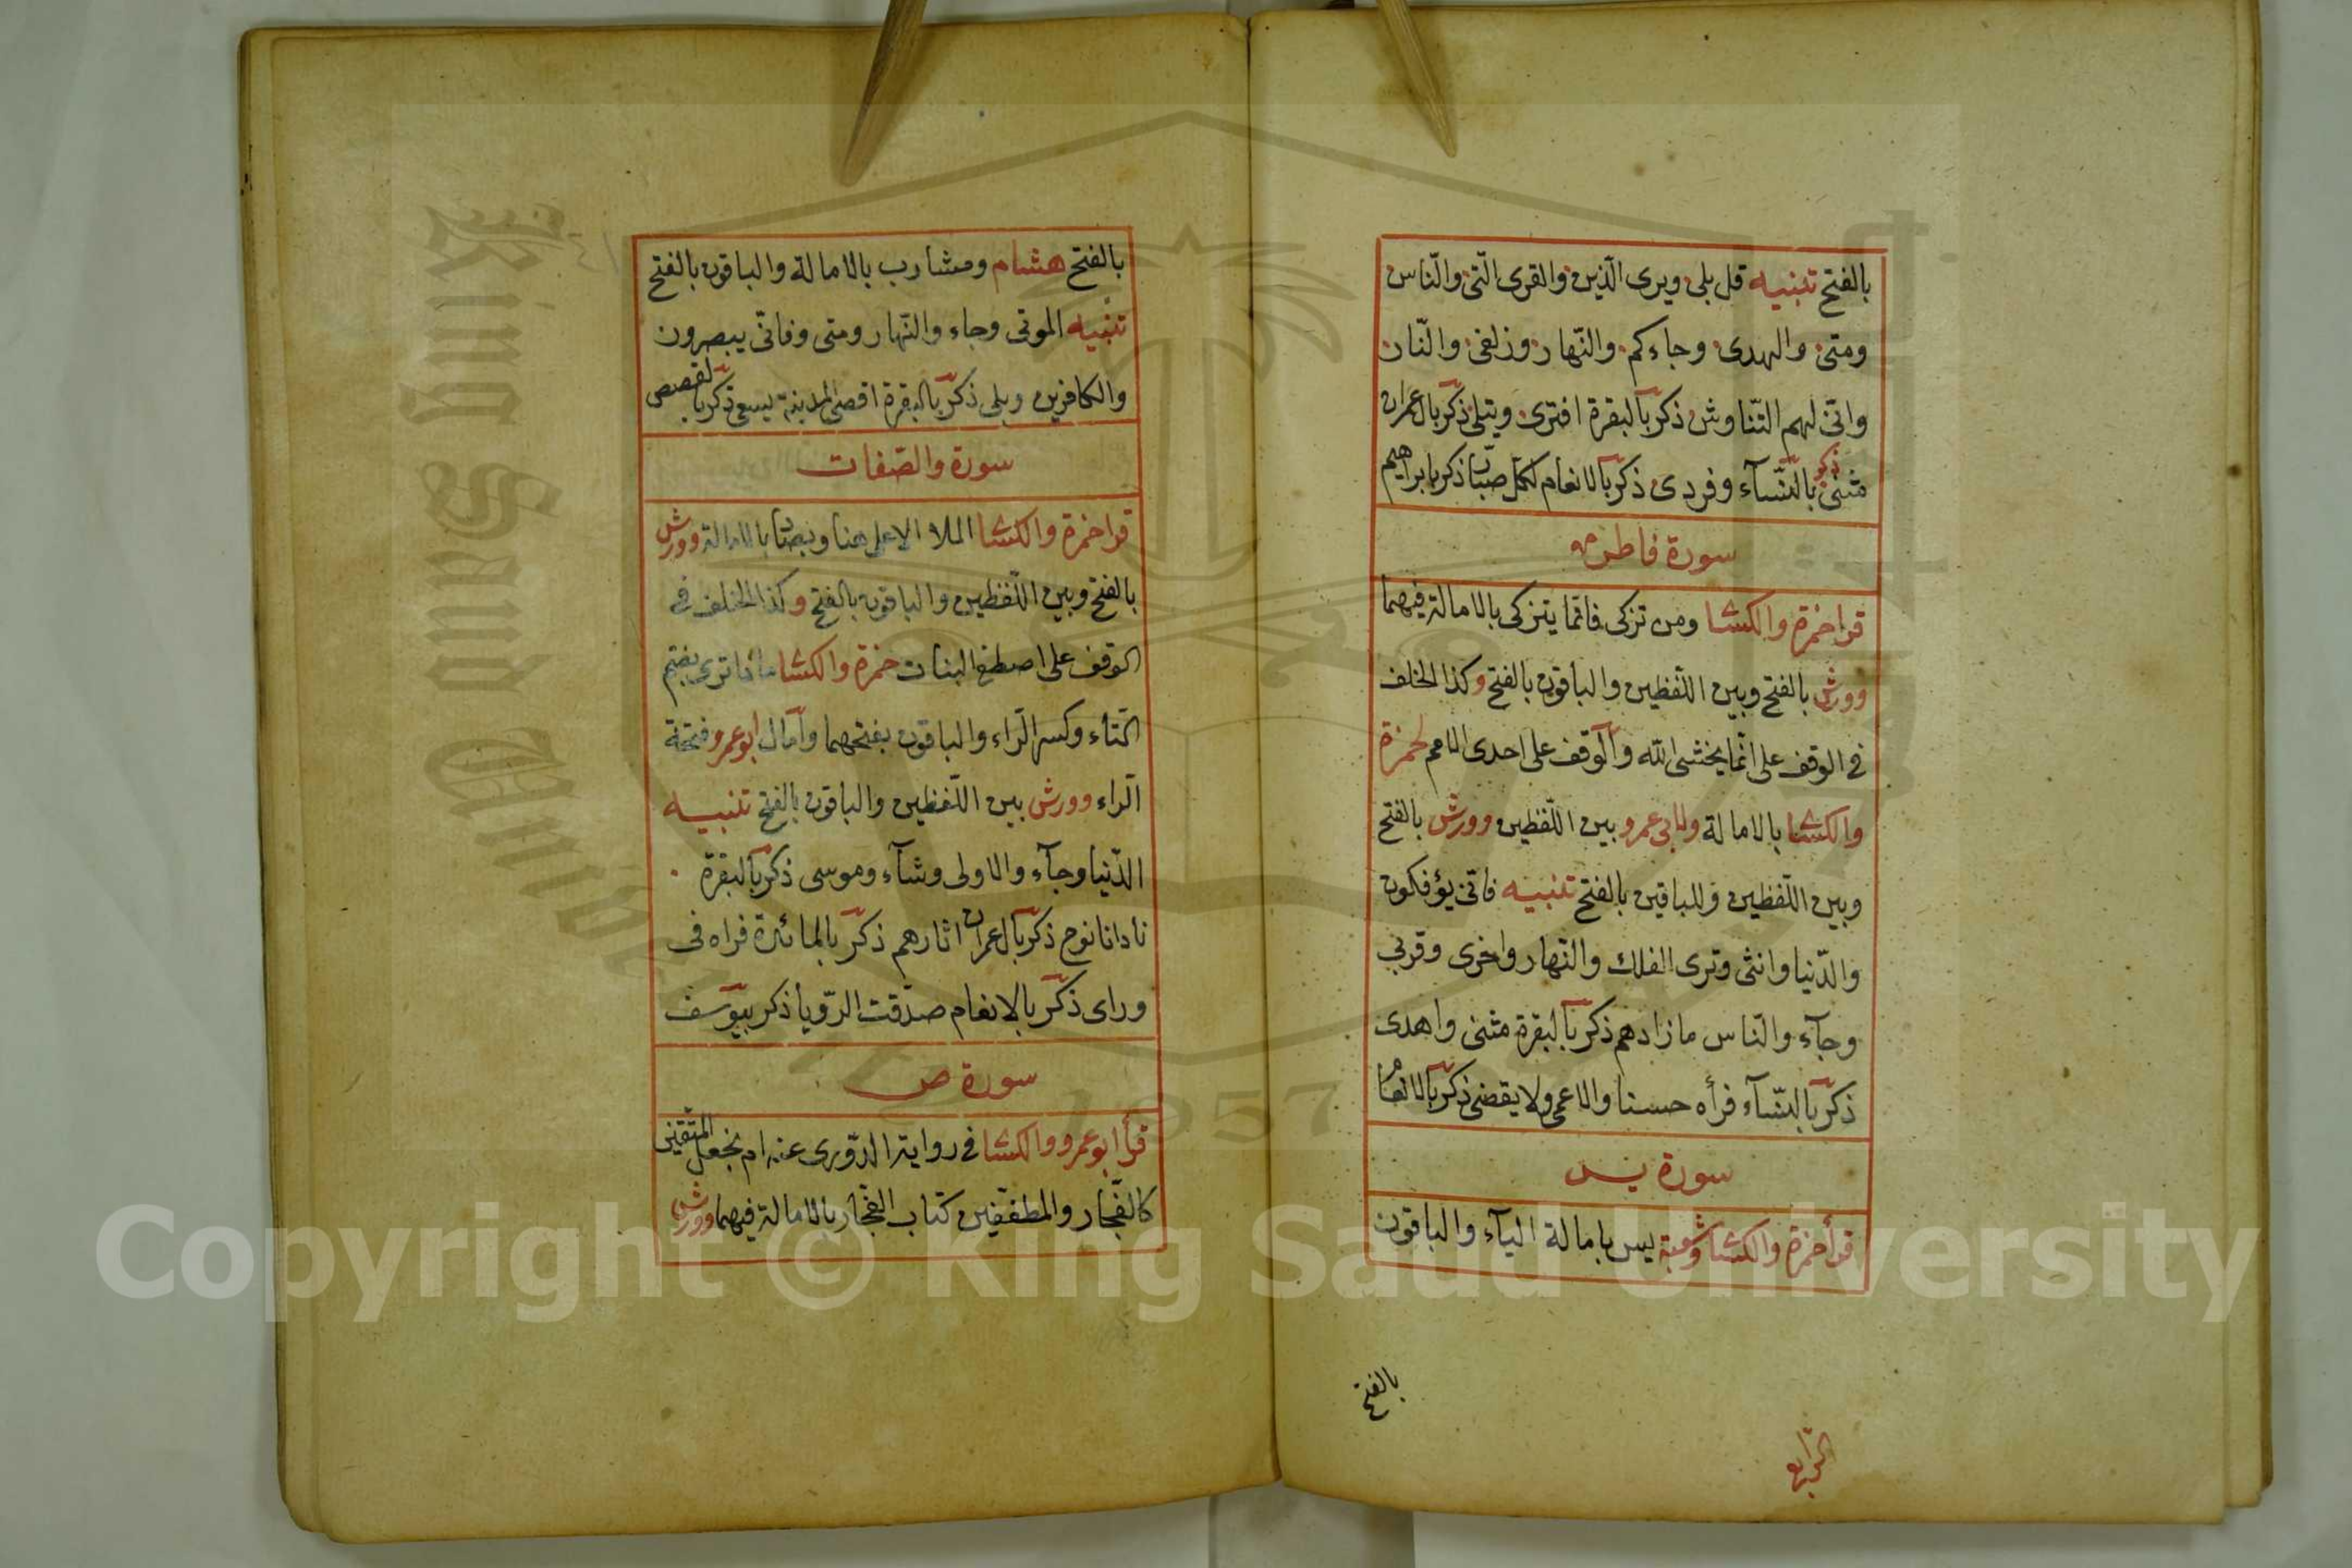 بالفتح تنبيه قل بلى ويرى الّذين والقرى الّتى والنّاس
ومتى والهدى وجاءكم والنّهار وزلفى والنّار
وانّى لهم التّناوش ذكر بالبقرة افترى ويتلى ذكر بال عمران
مثنى ذكر بالنّسآء وفردى ذكر بالانعام لكل صبّار ذكر بابراهيم
سورة فاطر
قرا حمزة والكسا ومن تزكى فانّما يتزكى بالامالة فيهما
وورش بالفتح وبين اللّفظين والباقون بالفتح وكذا الخلف
فى الوقف على انّما يخشى الله والوقف على احدى الامم لحمزة
والكسا بالامالة ولابى عمرو بين اللّفظين وورش بالفتح
وبين اللّفظين وللباقين بالفتح تنبيه فانّى يؤفكون
والدّنيا وانثى وترى الفلك والنّهار واخرى وقربى
وجآء والنّاس ما زادهم ذكر بالبقرة مثنى واهدى
ذكر بالنّسآء فرأه حسنا والاعمى ولا يقضى ذكر بالانعام
سورة يس
قرأ حمزة والكسا وشعبة يس بامالة اليآء والباقون
بالفتح
الرابع
بالفتح هشام ومشارب بالامالة والباقون بالفتح
تنبيه الموتى وجاء والنّهار ومتى وفانّى يبصرون
والكافرين وبلى ذكر بالبقرة اقصى المدينة يسعى ذكر بالقصص
سورة والصّفات
قرا حمزة والكسا الملا الاعلى هنا وبصاد بالامالة وورش
بالفتح وبين اللّفظين والباقون بالفتح وكذا الخلف فى
الوقف على اصطفى البنات حمزة والكسا ماذا ترى بضم
التّاء وكسر الرّاء والباقون بفتحهما وامال ابو عمرو فتحة
الرّاء وورش بين اللّفظين والباقون بالفتح تنبيه
الدّنيا وجآء والاولى وشآء وموسى ذكر بالبقرة
نادانا نوح ذكر بال عمران اثارهم ذكر بالمائدة فراه فى
وراى ذكر بالانعام صدّقت الرّويا ذكر بيوسف
سورة ص
قرأ ابو عمرو والكسا فى رواية الدّورى عنه ام نجعل المتّقين
كالفجّار والمطفّفين كتاب الفجّار بالامالة فيهما وورش
٤١
Copyright © King Saud University
King Saud University
1957